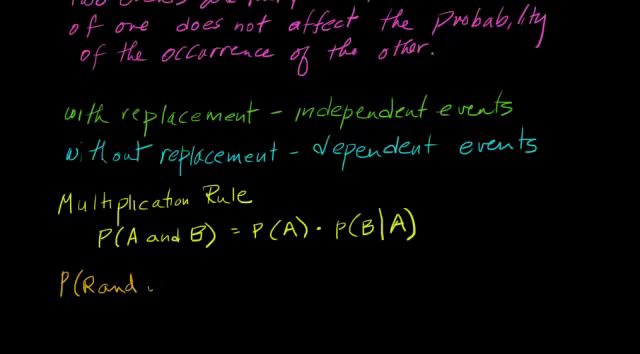 of one does not affect the probability
of the occurrence of the other.
with replacement - independent events
without replacement - dependent events
Multiplication Rule
P(A and B) = P(A) · P(B|A)
P(R and